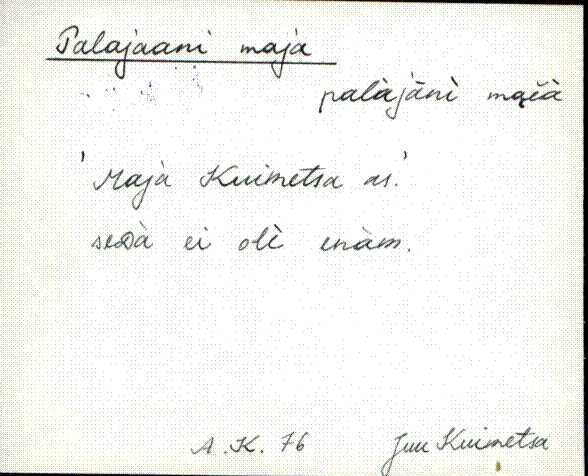 Palajaani maja
palàjānì maìà
'Maja Kuimetsa as.'
seDà ei olè enàm.
A.K. 76 Juu Kuimetsa